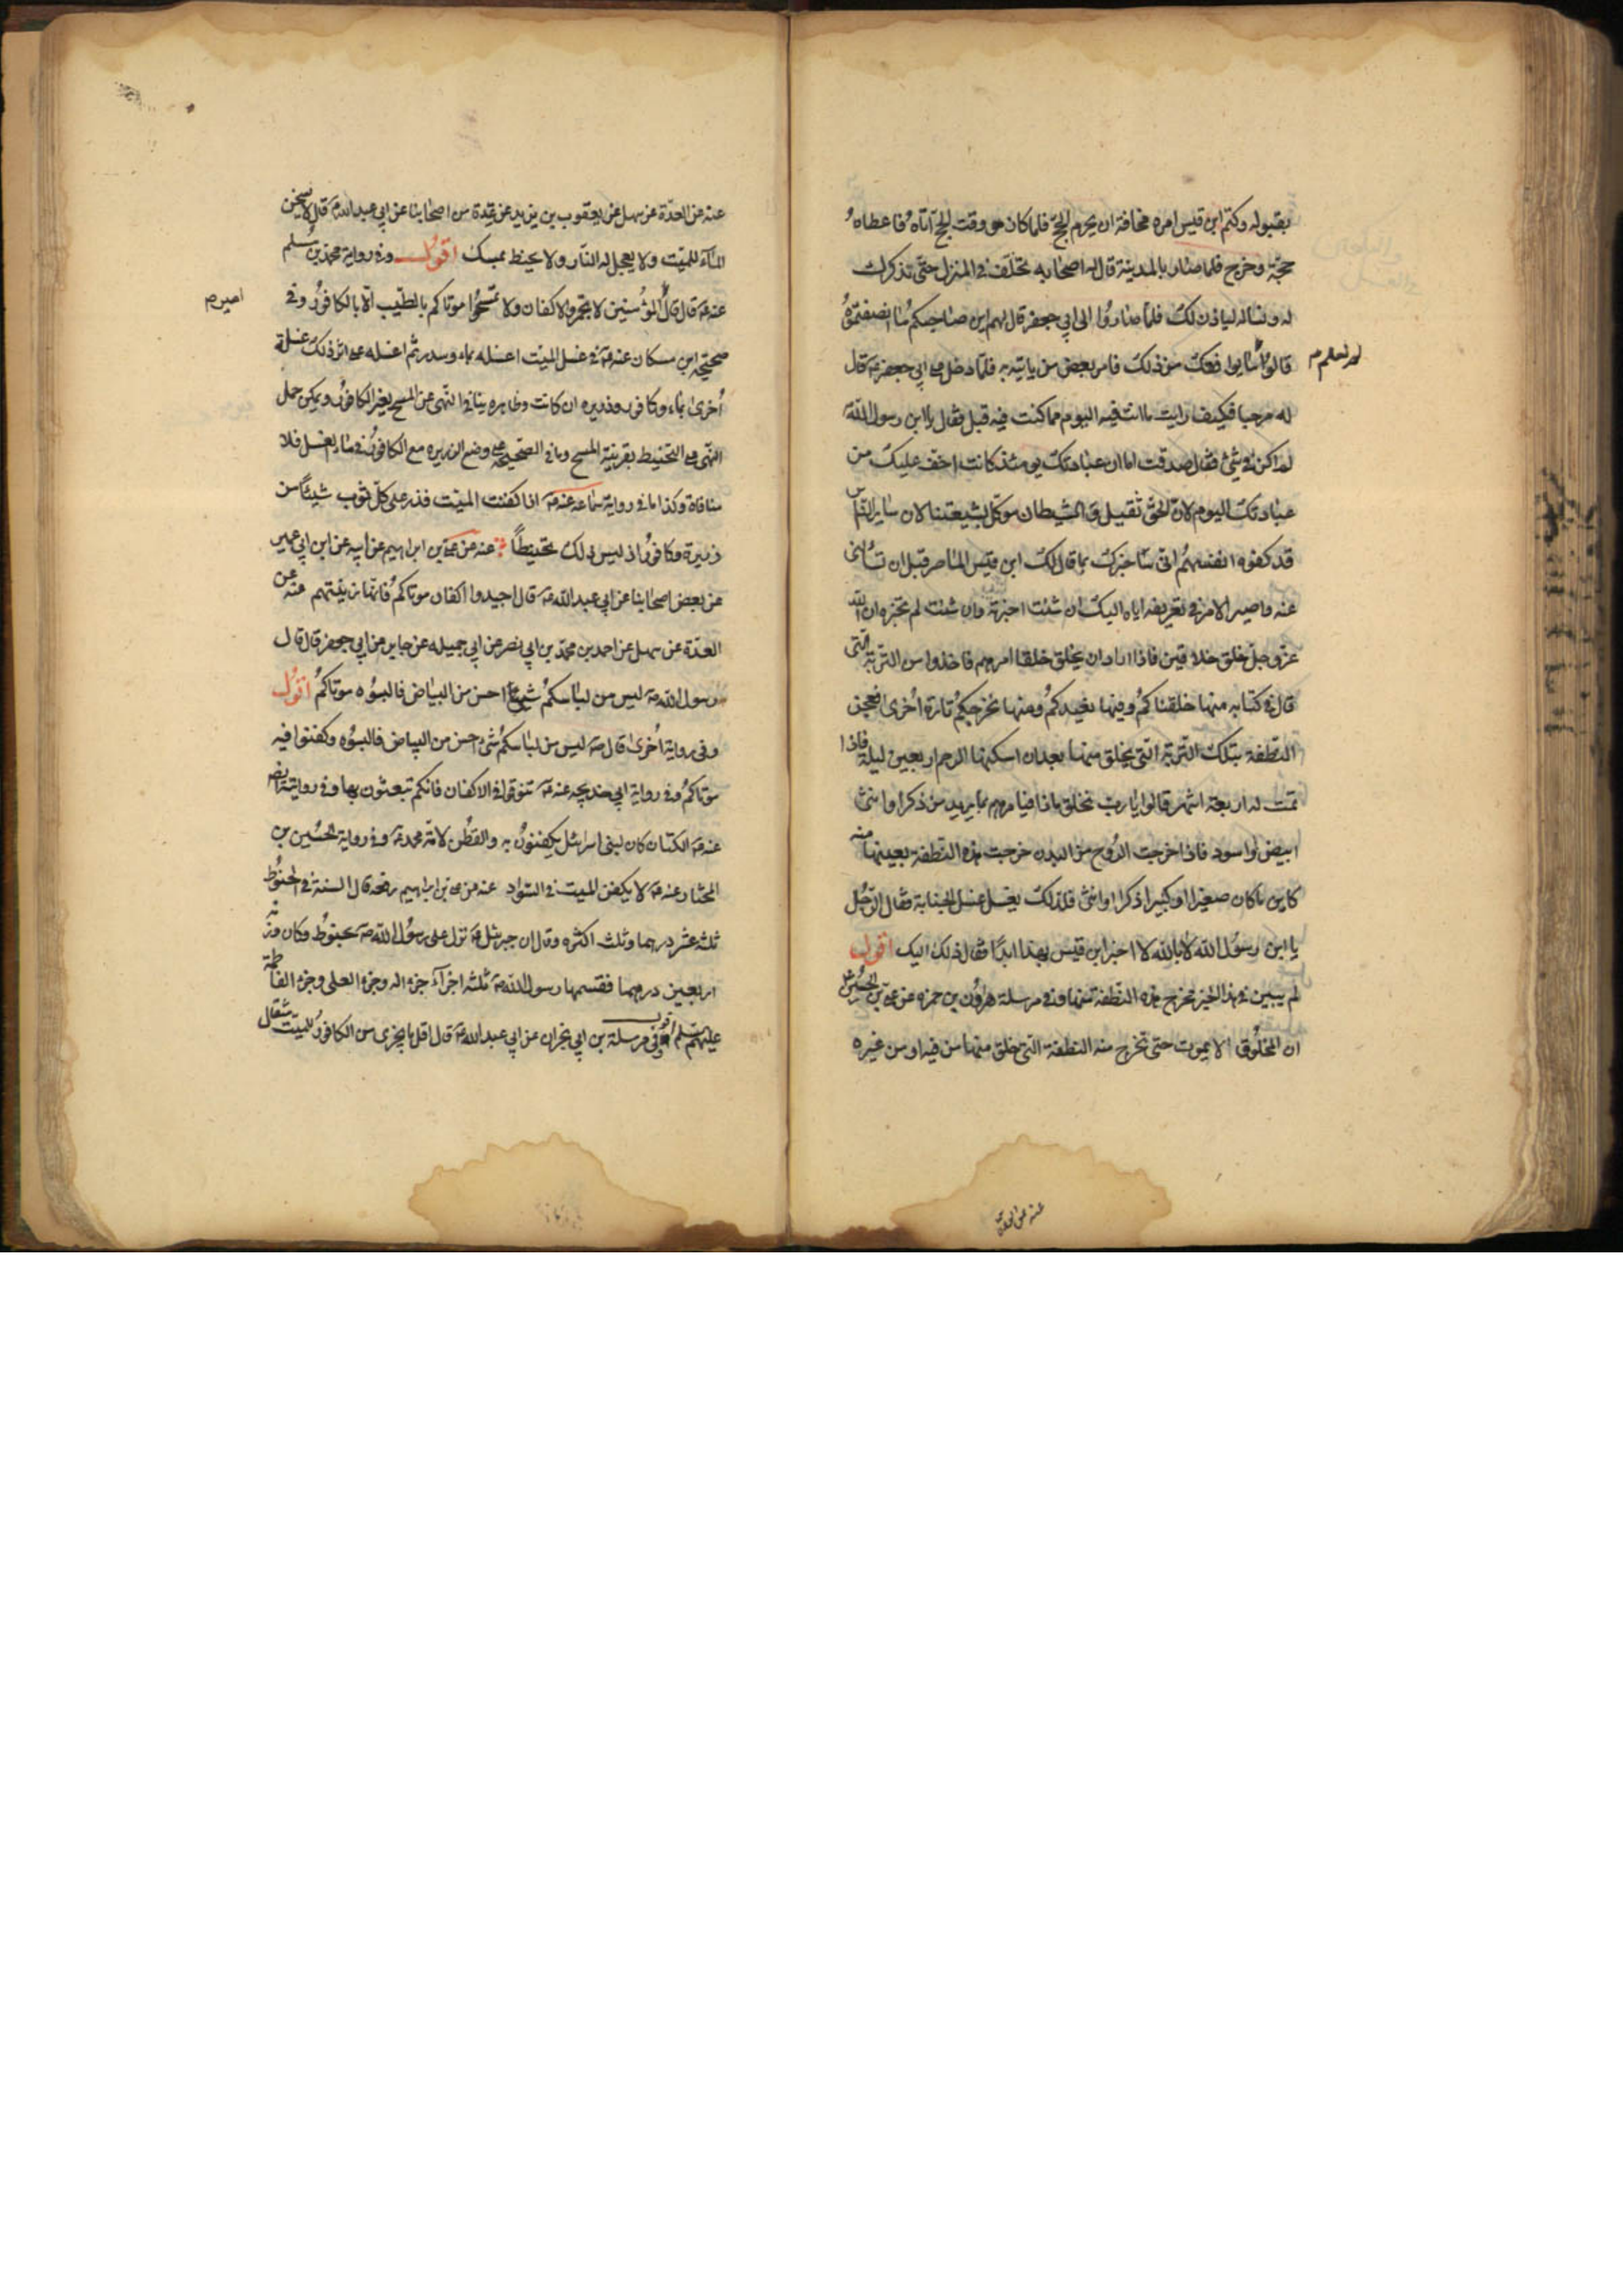 بقبوله وكتم ابن قيس امره مخافة ان يحرم الحج فلما كان هو وقت الحج اتاه فاعطاه
حجة وخرج فلما صار بالمدينة قال له اصحابه تخلف في المنزل حتى نذكرك
له ونساله لياذن لك فلما صاروا الى ابي جعفر قال لهم اين صاحبكم ما انصفتموه
قالوا لم نعلم ما يوافقك من ذلك فامر بعض من ياتيه به فلما دخل على ابي جعفر ع قال
له مرحبا فكيف رايت ما انت فيه اليوم مما كنت فيه قبل فقال يا ابن رسول الله
لم اكن في شئ فقال صدقت اما ان عبادتك يومئذ كانت اخف عليك من
عبادتك اليوم لان الحق ثقيل والشيطان موكل بشيعتنا لان ساير الناس
قد كفوه انفسهم انى ساخبرك بما قال لك ابن قيس الماصر قبل ان تسالنى
عنه واصير الامر في تعريفه اياه اليك ان شئت اخبرته وان شئت لم تخبره ان الله
عز وجل خلق خلاقين فاذا اراد ان يخلق خلقا امرهم فاخذوا من التربة التى
قال في كتابه منها خلقناكم وفيها نعيدكم ومنها نخرجكم تارة اخرى فعجن
النطفة بتلك التربة التى يخلق منها بعد ان اسكنها الرحم اربعين ليلة فاذا
تمت له اربعة اشهر قالوا يا رب نخلق ماذا فيامرهم بما يريد من ذكر او انثى
ابيض او اسود فاذا خرجت الروح من البدن خرجت هذه النطفة بعينها منه
كاين ما كان صغيرا او كبيرا ذكرا او انثى فلذلك يغسل غسل الجنابة فقال الرجل
يا ابن رسول الله لا بالله لا اخبر ابن قيس بهذا ابدا فقال ذلك اليك اقول
لم يبين في هذا الخبر مخرج هذه النطفة منها وفي مرسلة هرون بن حمزه عن على بن الحسين
ان المخلوق لا يموت حتى تخرج منه النطفة التى خلق منها من فيه او من غيره
عنه عن العدة
عنه عن العدة عن سهل عن يعقوب بن يزيد عن عدة من اصحابنا عن ابي عبد الله ع قال لا يسخن
الماء للميت ولا يعجل له النار ولا يحنط بمسك اقول وفي رواية محمد بن مسلم
عنه ع قال قال امير المؤمنين لا تجمروا الاكفان ولا تمسحوا موتاكم بالطيب الا بالكافور وفي
صحيحة ابن مسكان عنه ع في غسل الميت اغسله بماء وسدر ثم اغسله على اثر ذلك غسلة
اخرى بماء وكافور وذريره ان كانت وظاهره ينافي النهى عن المسح بغير الكافور ويمكن حمل
النهى على التحنيط بقرينة المسح وما في الصحيحة على وضع الذريره مع الكافور في ماء الغسل فلا
منافاة وكذا ما في رواية سماعه عنه ع اذا كفنت الميت فذر على كل ثوب شيئا من
ذريرة وكافور اذ ليس ذلك تحنيطا عنه عن على بن ابراهيم عن ابيه عن ابن ابي عمير
عن بعض اصحابنا عن ابي عبد الله ع قال اجيدوا اكفان موتاكم فانها زينتهم عنه عن
العدة عن سهل عن احمد بن محمد بن ابي نصر عن ابي جميله عن جابر عن ابي جعفر قال قال
رسول الله ص ليس من لباسكم شئ احسن من البياض فالبسوه موتاكم اقول
وفي رواية اخرى قال ص ليس من لباسكم شئ احسن من البياض فالبسوه وكفنوا فيه
موتاكم وفي رواية ابي خديجه عنه ع تنوقوا في الاكفان فانكم تبعثون بها وفي روايته ايضا
عنه ع الكتان كان لبنى اسرائيل يكفنون به والقطن لامة محمد ص وفي رواية الحسين بن
المختار عنه ع لا يكفن الميت في السواد عنه عن على بن ابراهيم رفعه قال السنة في الحنوط
ثلثه عشر درهما وثلث اكثره وقال ان جبرئيل ع نزل على رسول الله ص بحنوط وكان وزنه
اربعين درهما فقسمها رسول الله ص ثلثه اجزاء جزء له وجزء لعلى وجزء لفاطمة
عليهم السلم اقول وفي مرسلة بن ابي نجران عن ابي عبد الله ع قال اقل ما يجزى من الكافور للميت مثقال